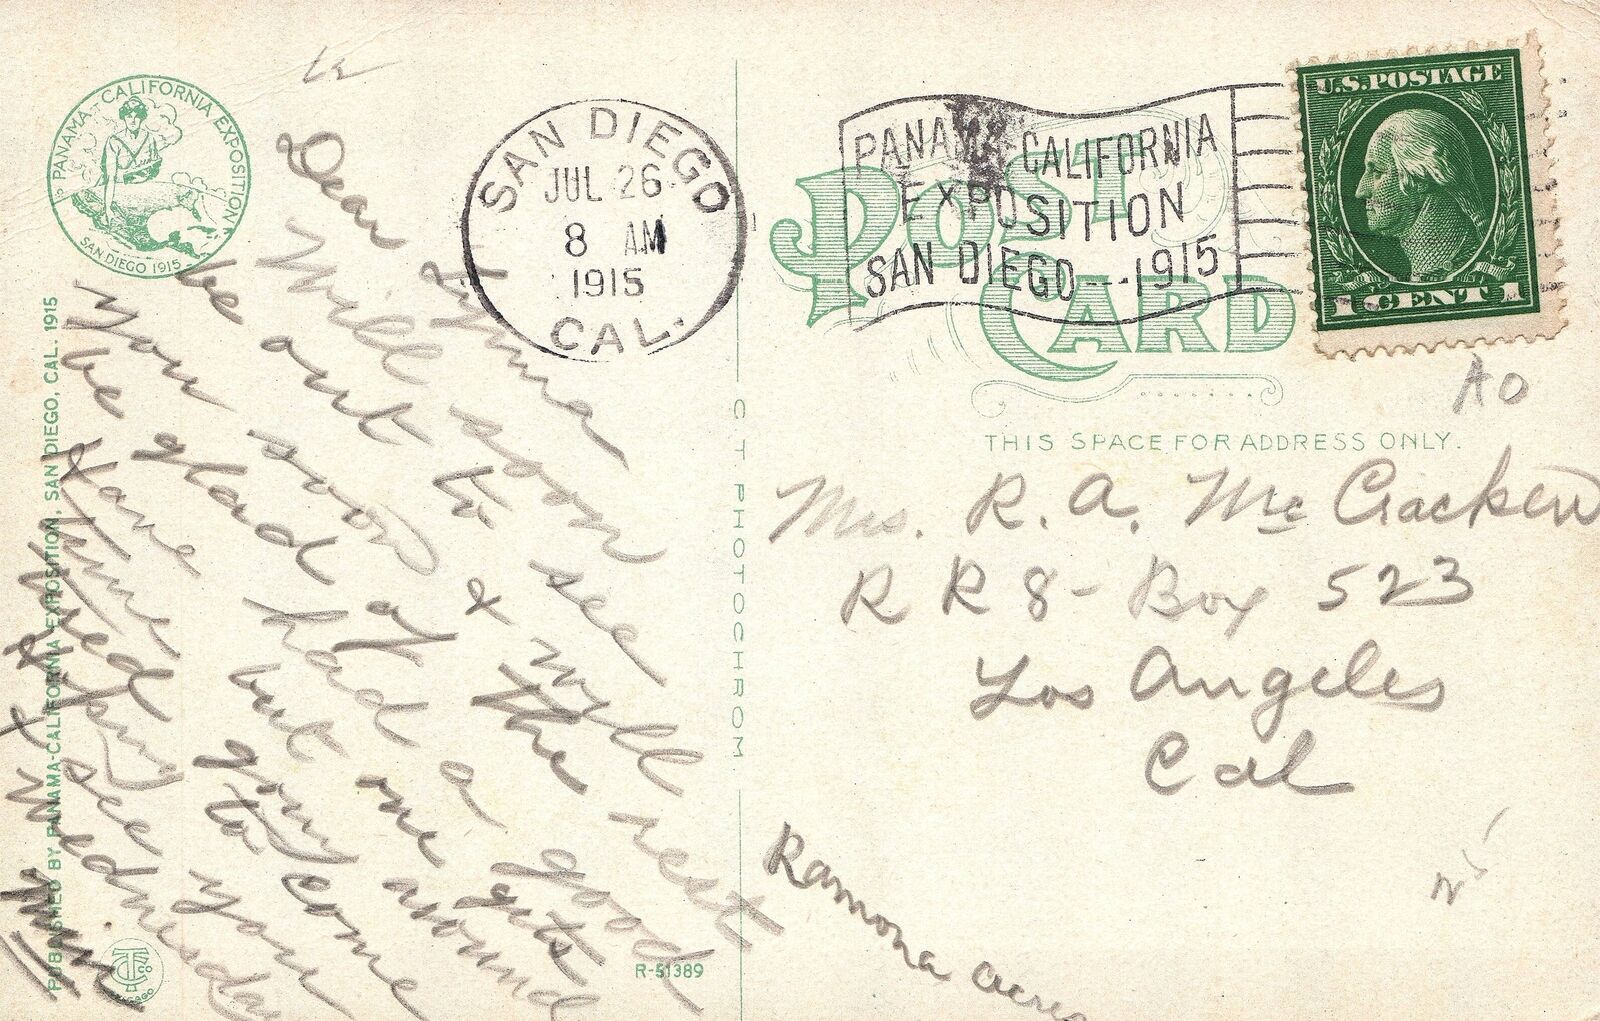 PANAMA-CALIFORNIA EXPOSITION
SAN DIEGO 1915
Dear
Will soon
be out to see
you soon & will
be glad of the rest
Have had a good
time but one gets
tired going around
& long to come
& see you
Wednesday
SAN DIEGO
JUL 26
8 AM
1915
CAL.
PANAMA-CALIFORNIA
EXPOSITION
SAN DIEGO---1915
POST CARD
U.S. POSTAGE
1 CENT 1
A O
THIS SPACE FOR ADDRESS ONLY.
Mrs. R. A. McCracken
R R 8 - Box 523
Los Angeles
Cal
Ramona Acres
C T PHOTOCHROM
PUBLISHED BY PANAMA-CALIFORNIA EXPOSITION, SAN DIEGO, CAL. 1915
CHICAGO
R-51389